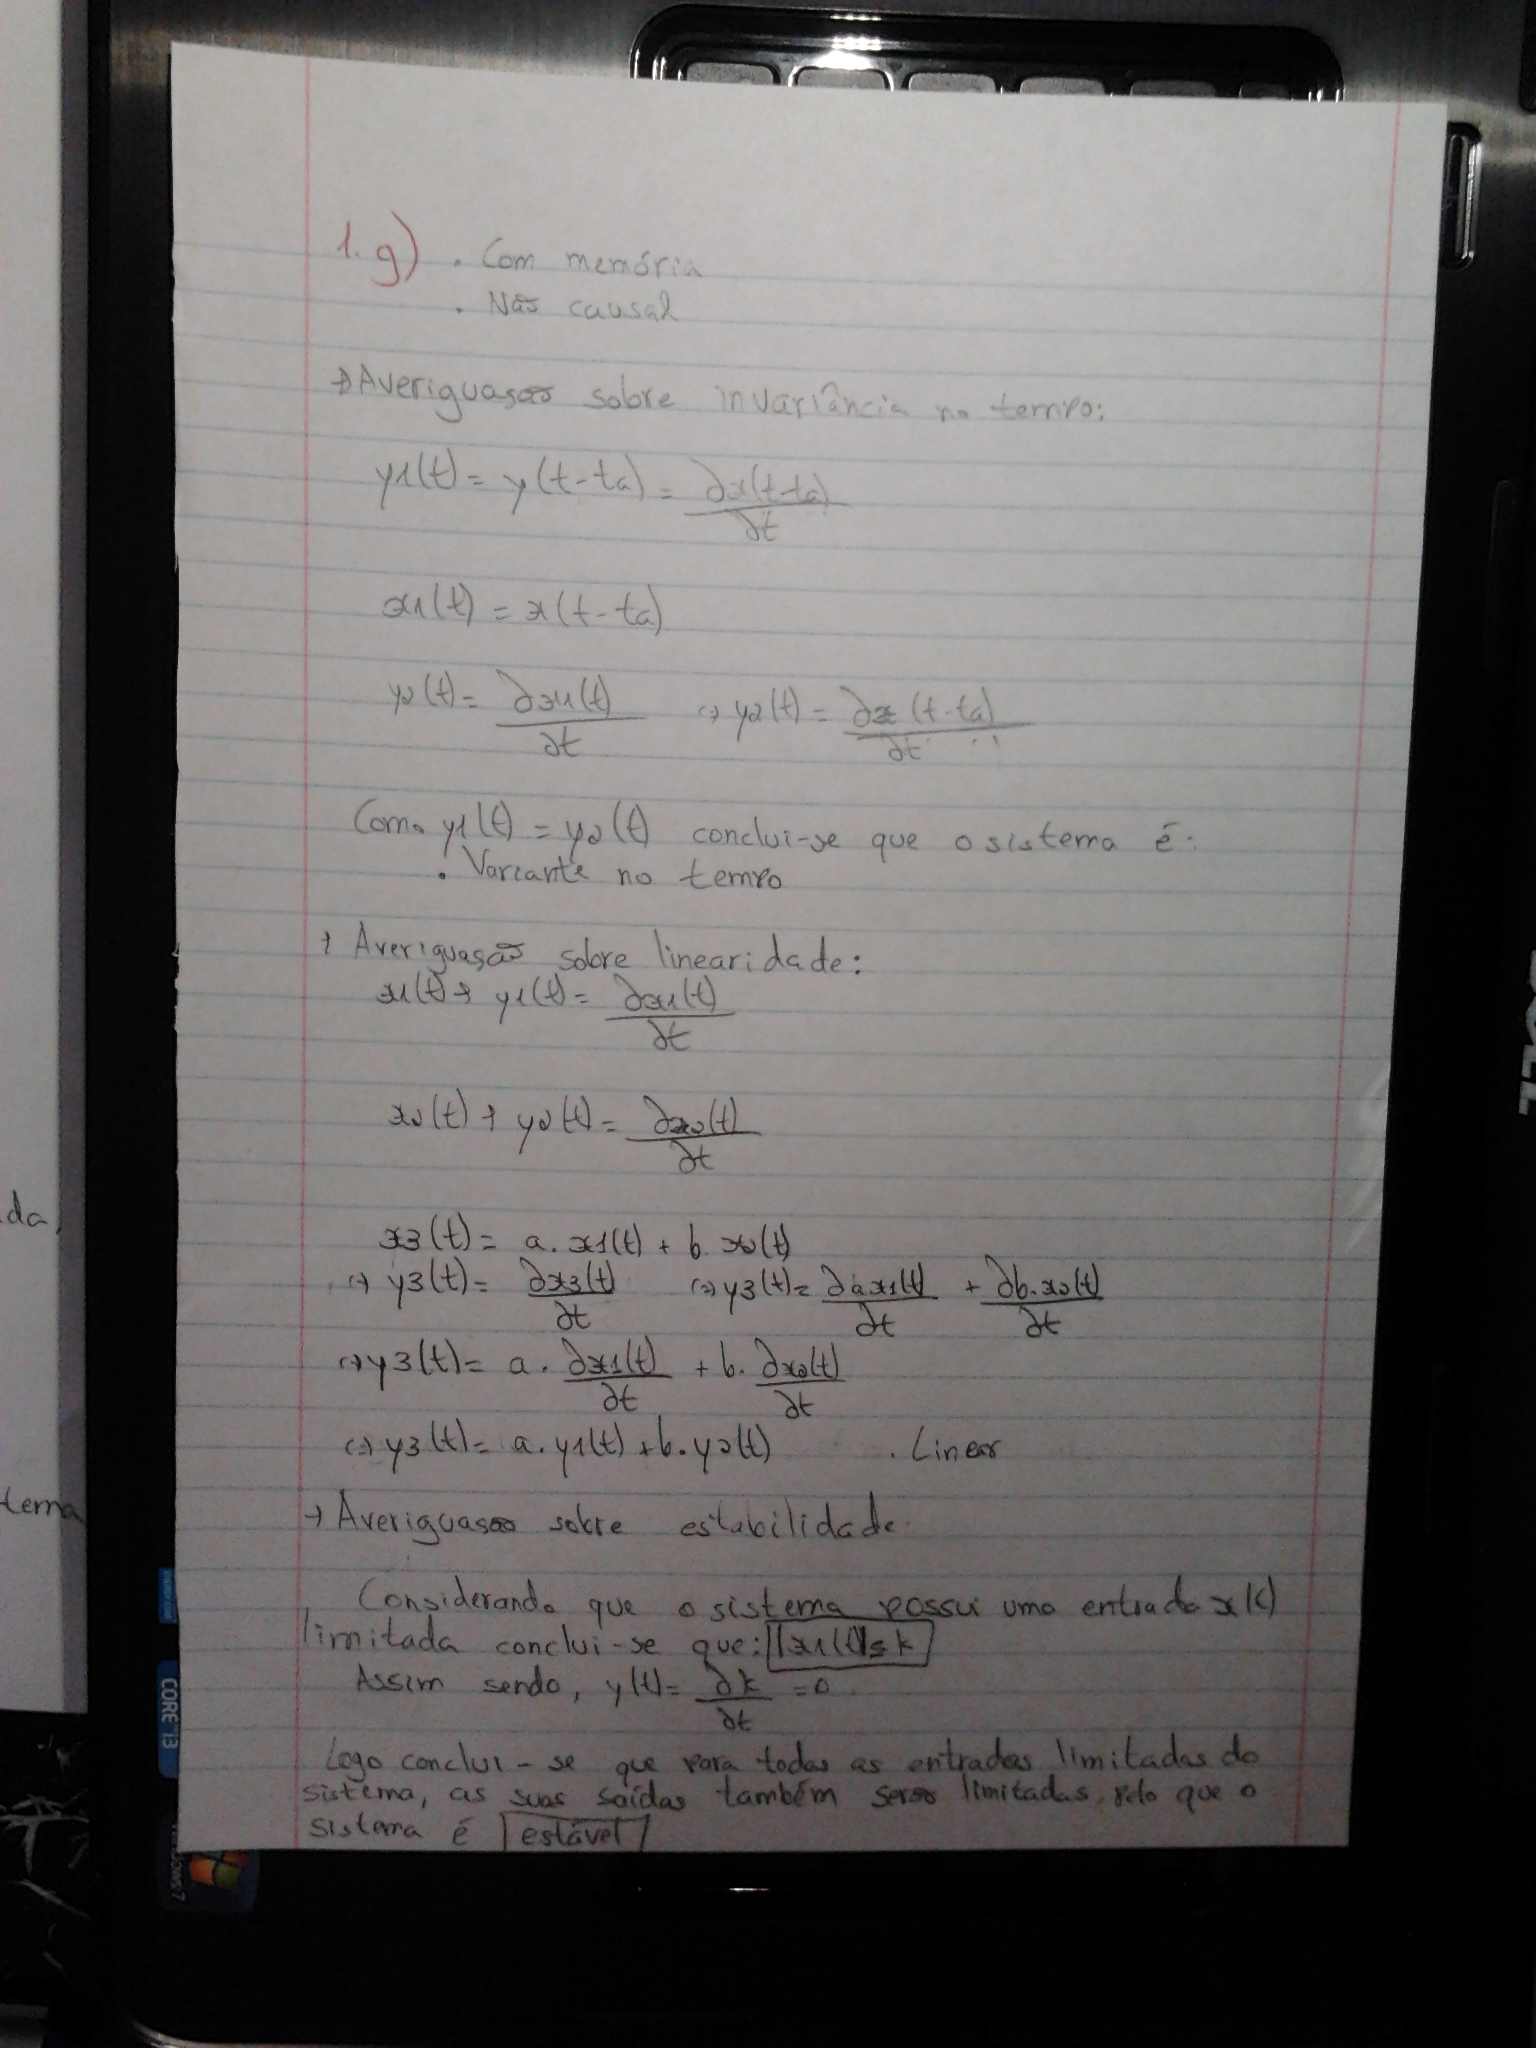 1. g) . Com memória
. Não causal
→ Averiguasão sobre invariância no tempo:
y1(t) = y(t-ta) = ∂x(t-ta)
∂t
x1(t) = x(t-ta)
y2(t) = ∂x1(t) (=) y2(t) = ∂x(t-ta)
∂t ∂t
Como y1(t) = y2(t) conclui-se que o sistema é:
. Variante no tempo
→ Averiguasão sobre linearidade:
x1(t) → y1(t) = ∂x1(t)
∂t
x2(t) → y2(t) = ∂x2(t)
∂t
x3(t) = a.x1(t) + b.x2(t)
(=) y3(t) = ∂x3(t) (=) y3(t) = ∂a.x1(t) + ∂b.x2(t)
∂t ∂t ∂t
(=) y3(t) = a. ∂x1(t) + b. ∂x2(t)
∂t ∂t
(=) y3(t) = a.y1(t) + b.y2(t) . Linear
→ Averiguasão sobre estabilidade.
Considerando que o sistema possui uma entrada x(t)
limitada conclui-se que: |x1(t)|≤k
Assim sendo, y(t) = ∂k = 0
∂t
Logo conclui-se que para todas as entradas limitadas do
sistema, as suas saídas também serão limitadas, pelo que o
sistema é estável
da,
tema
DELL
CORE i3